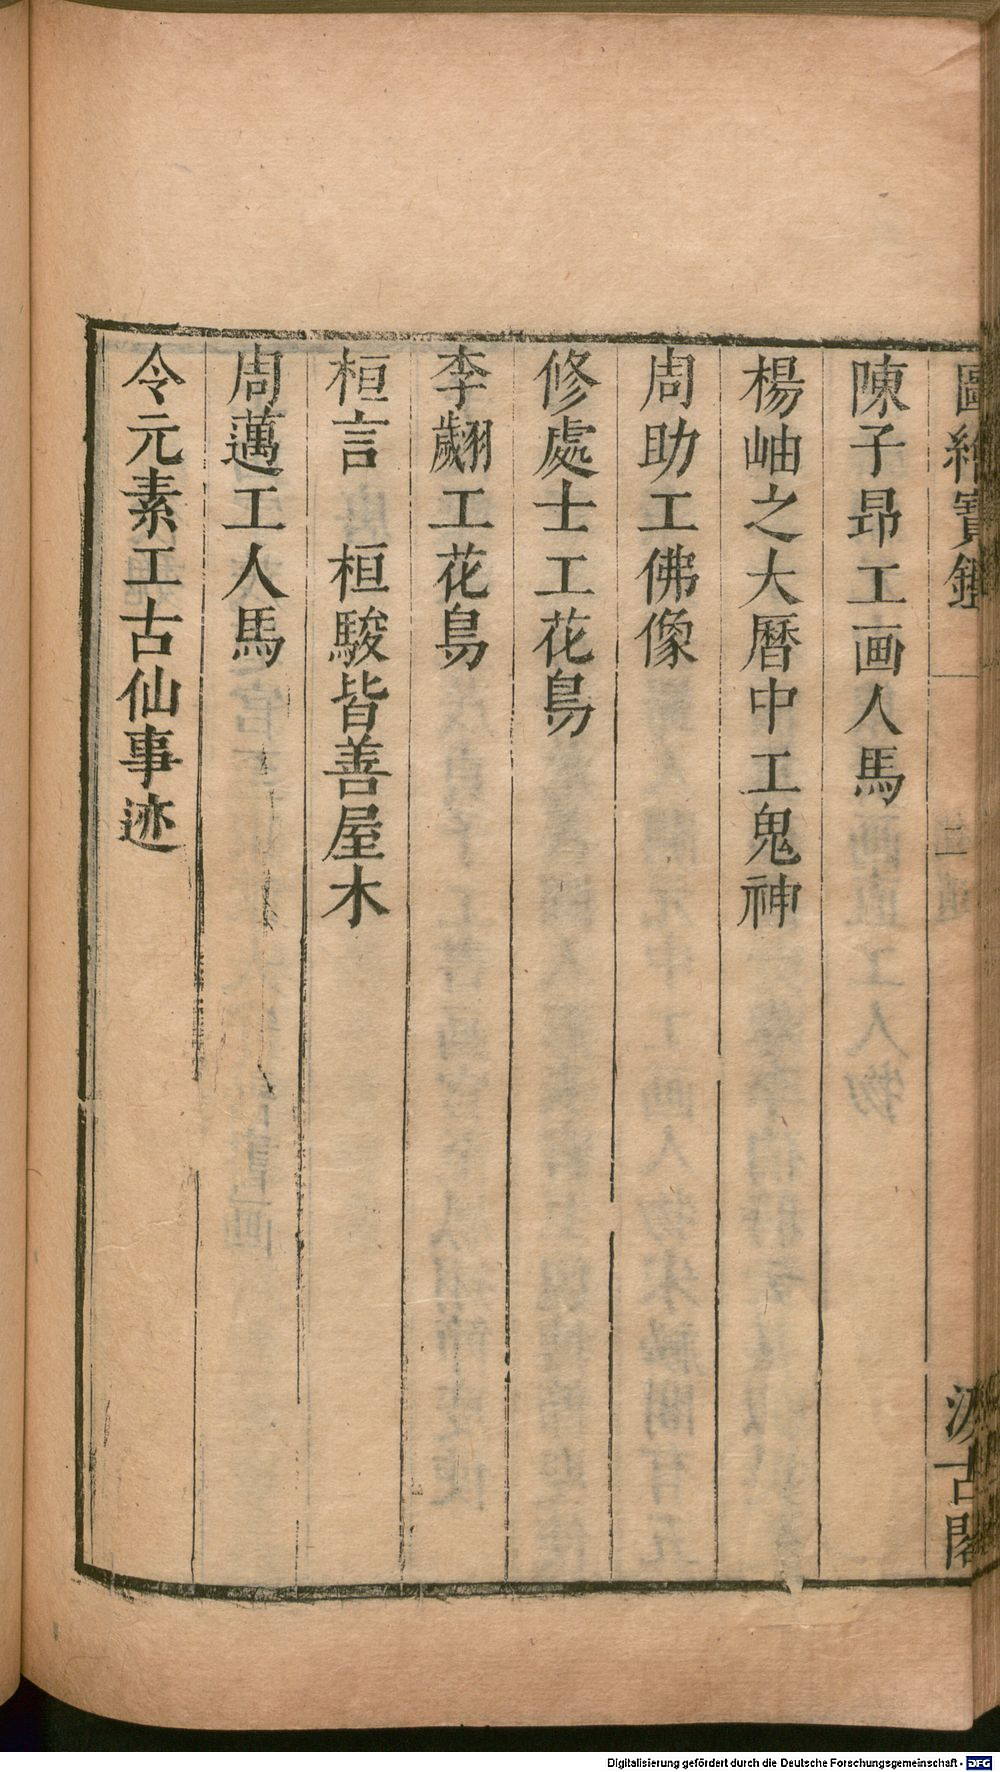 圖繪寶鑑
二
汲古閣
陳子昂工画人馬
楊岫之大曆中工鬼神
周助工佛像
修處士工花鳥
李翽工花鳥
桓言 桓駿皆善屋木
周邁工人馬
令元素工古仙事迹
Digitalisierung gefördert durch die Deutsche Forschungsgemeinschaft - DFG